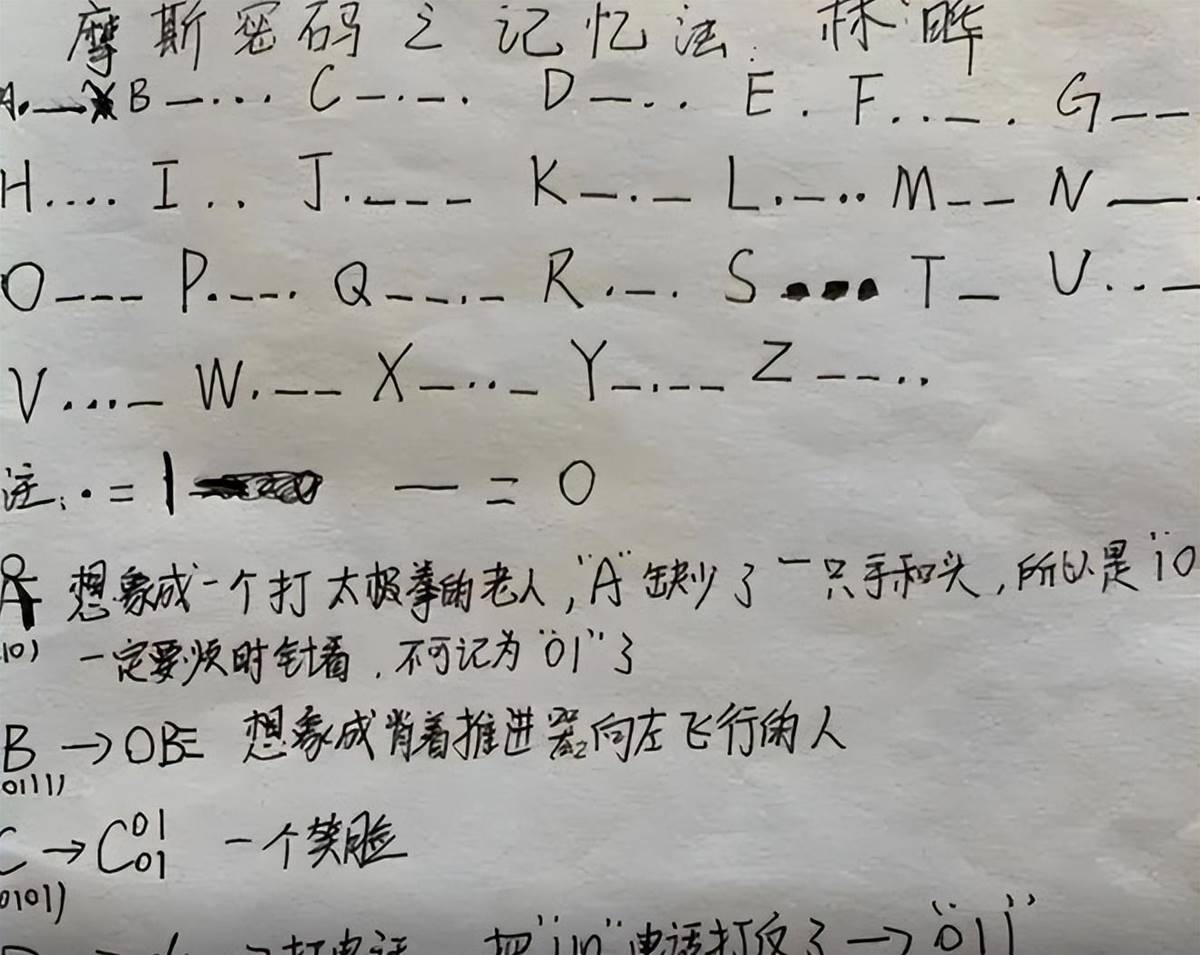 摩斯密码之记忆法. 林晔
A.— B—... C—.—. D—.. E. F..—. G——
H.... I.. J.——— K—.— L.—.. M—— N—.
O——— P.——. Q——.— R.—. S... T— U..—
V...— W.—— X—..— Y—.—— Z——..
注:·=1 —=0
想象成一个打太极拳的老人,"A"缺少了一只手和头,所以是"10
10) 一定要顺时针看.不可记为"01"了
B→0B 想象成背着推进器向左飞行的人
0111)
C→C 01 01 一个笑脸
0101)
→打电话 把"110"电话打反了→"011"